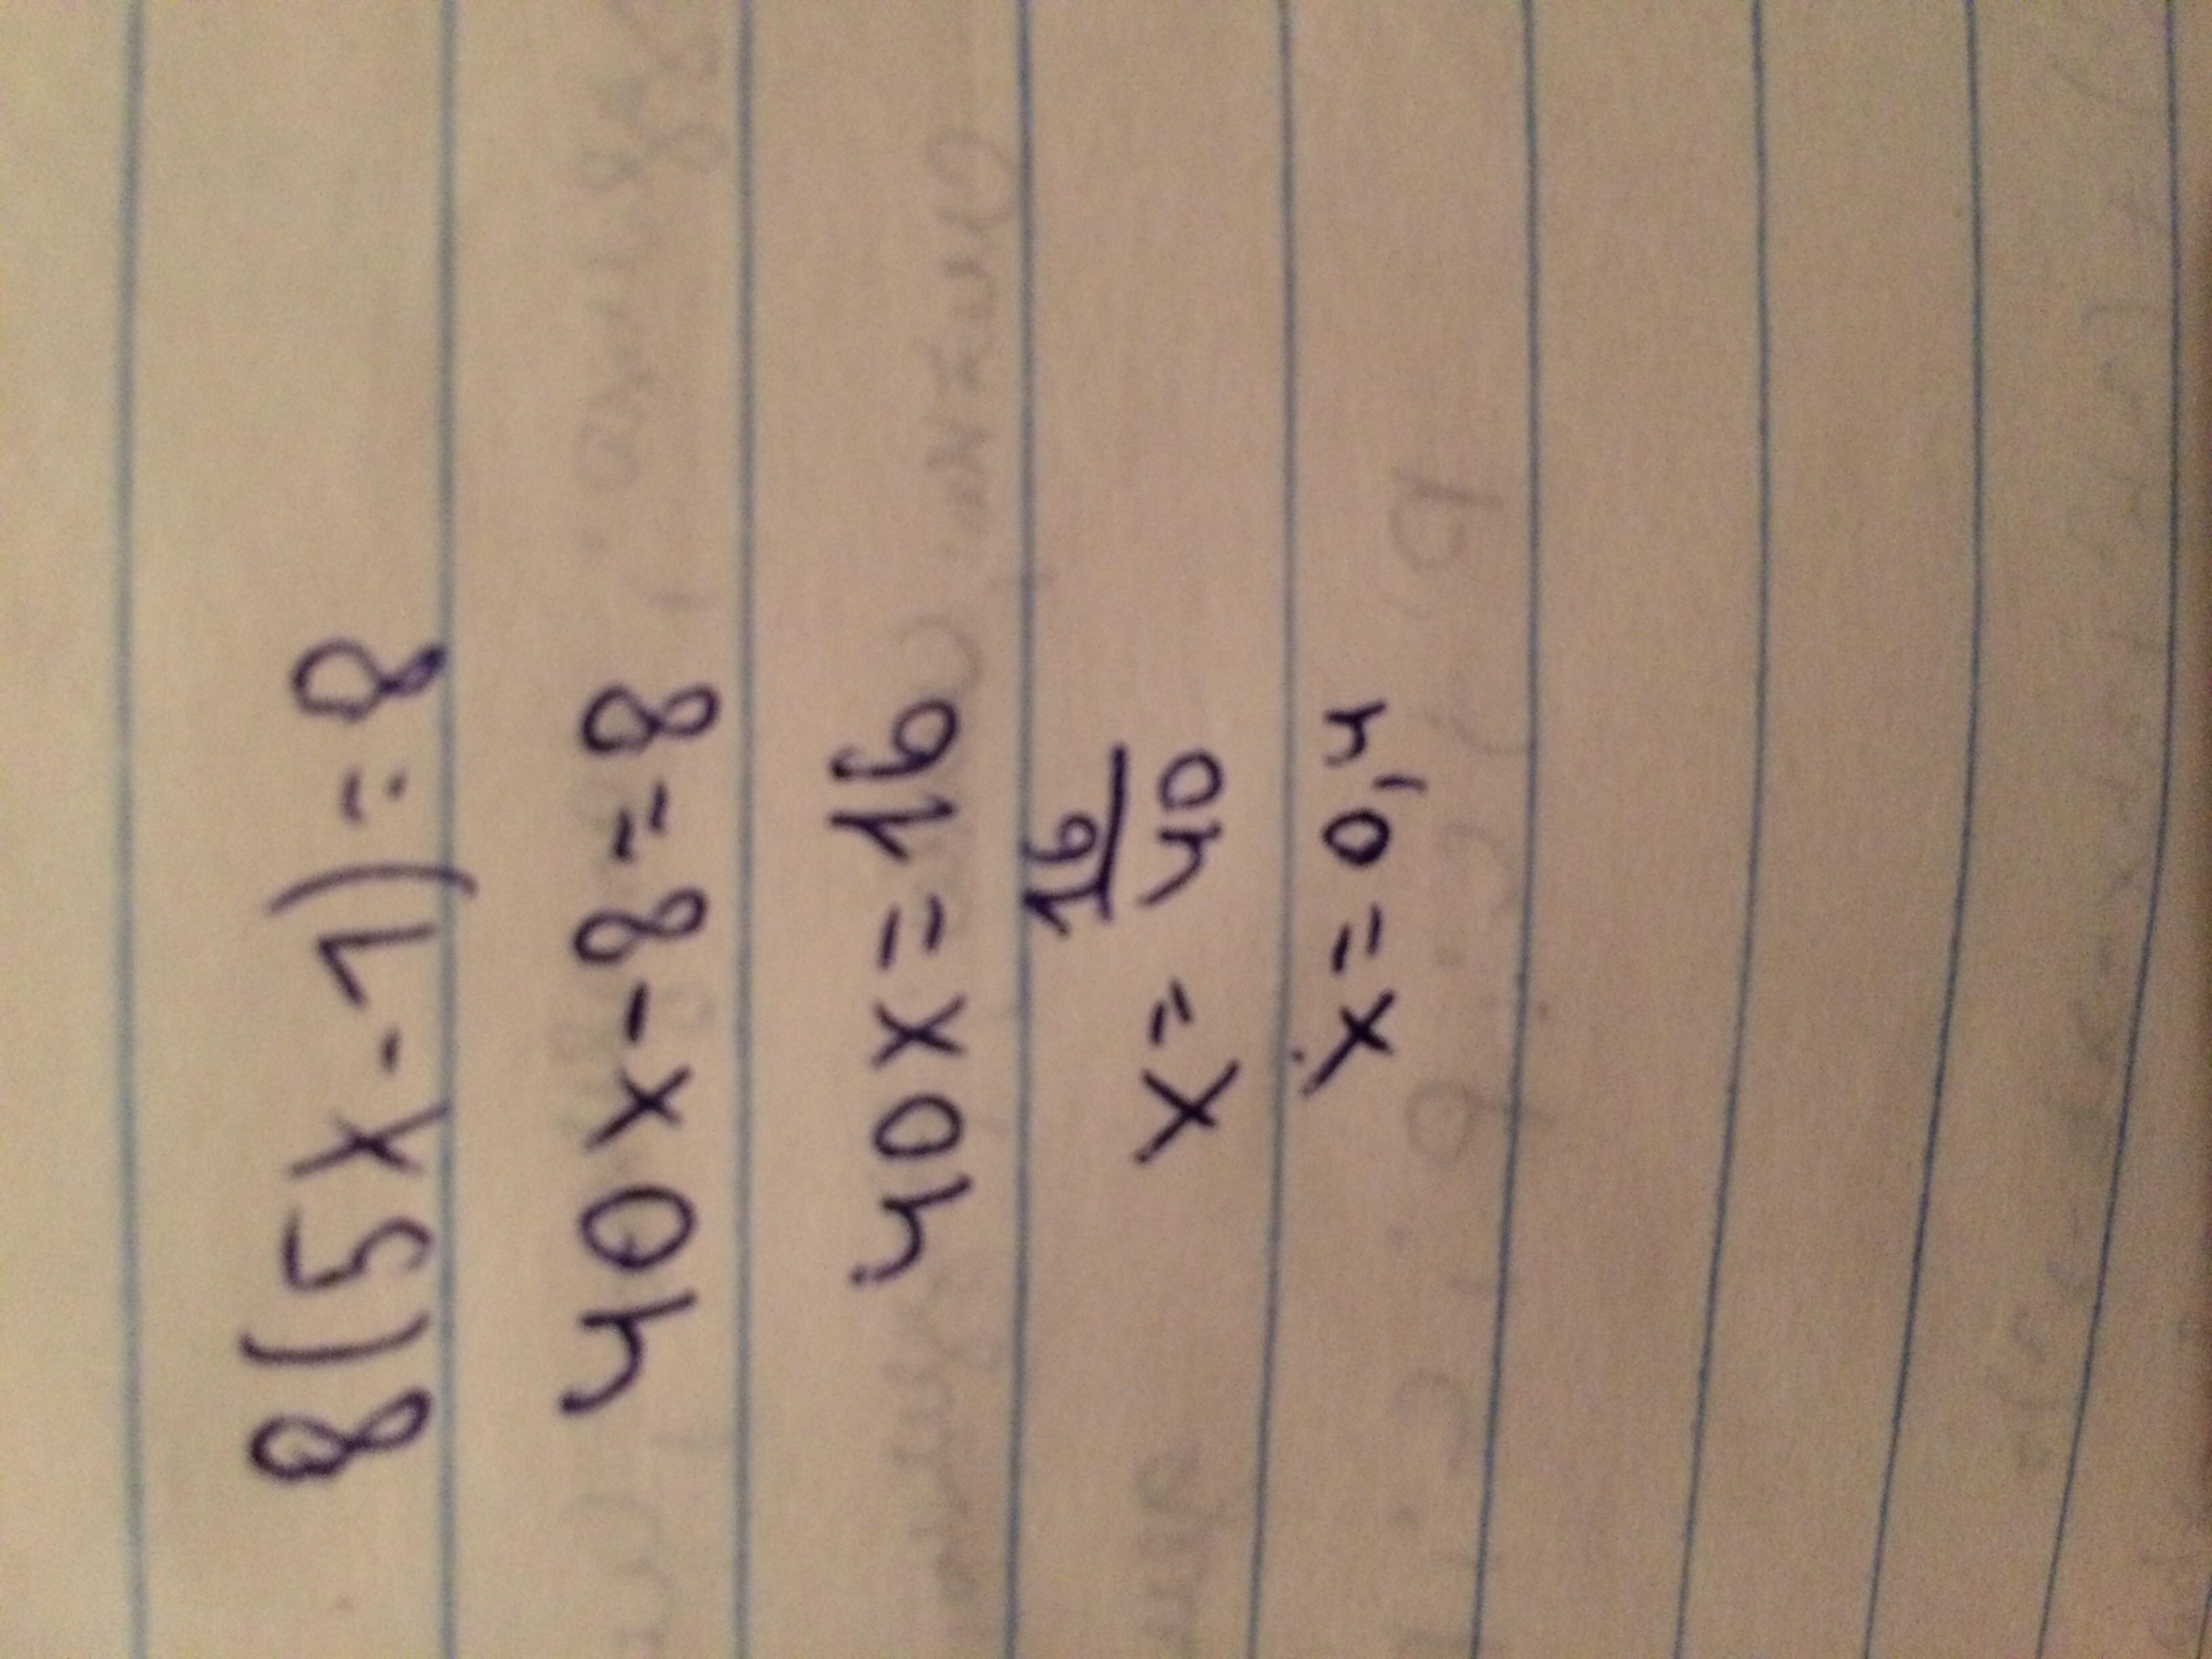 8(5x-1)=8
40x-8=8
40x=16
x= 16/40
x=0,4